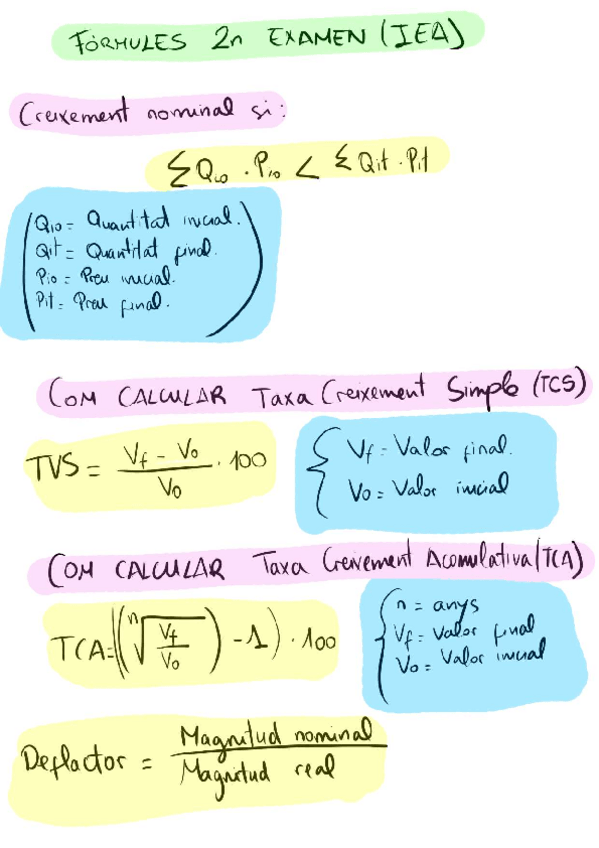 FÓRMULES 2n EXAMEN (IEA)
Creixement nominal si:
∑ Qi0 · Pi0 < ∑ Qit · Pit
Qi0 = Quantitat inicial.
Qit = Quantitat final.
Pi0 = Preu inicial.
Pit = Preu final.
COM CALCULAR Taxa Creixement Simple (TCS)
TVS = (Vf - V0) / V0 · 100
Vf = Valor final.
V0 = Valor inicial
COM CALCULAR Taxa Creixement Acomulativa (TCA)
TCA = ((ⁿ√(Vf / V0)) - 1) · 100
n = anys
Vf = Valor final
V0 = Valor inicial
Deflactor = Magnitud nominal / Magnitud real